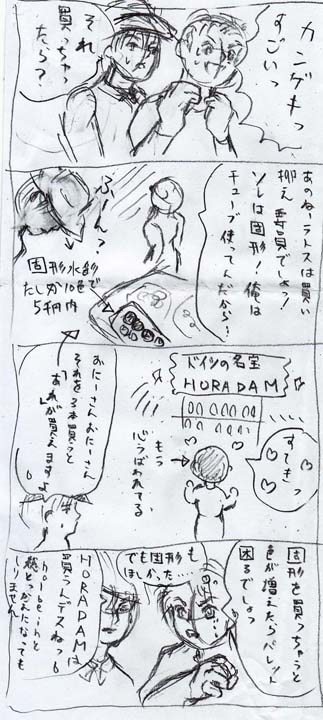 カンゲキっ
すごいっ
それ
買っちゃっ
たら？
あのねーラトスは買い
抑え要員でしょ！
ソレは固形！俺は
チューブ使ってんだから！
ふーん？
固形水彩
たしか10色で
5千円内
ドイツの名宝
HORADAM
すてきっ
もう
心うばわれてる
おにーさんおにーさん
それを3本買うと
あれが買えますよ
固形を買っちゃうと
色が増えたらパレット
困るでしょっ
でも固形も
ほしかった…
HORADAMは
買うんデスねっ
holbeinと